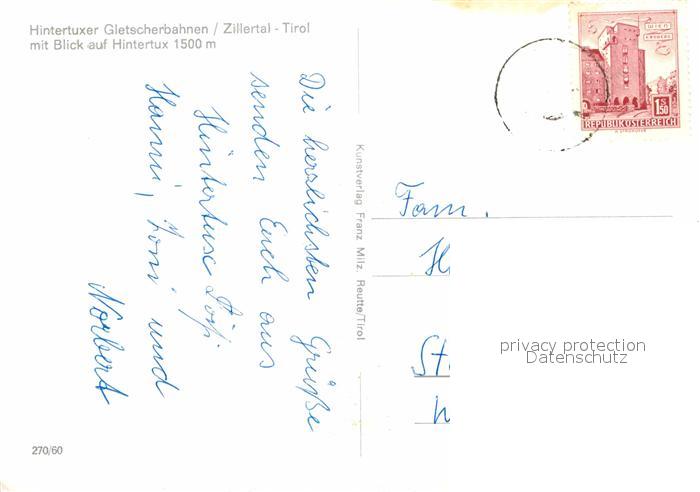 Hintertuxer Gletscherbahnen / Zillertal - Tirol
mit Blick auf Hintertux 1500 m
Die herzlichsten Grüße
senden Euch aus
Hintertux
Hanni, Toni und
Norbert
Kunstverlag Franz Milz. Reutte/Tirol
270/60
WIEN
ERDBERG
S
1.50
REPUBLIK ÖSTERREICH
Fam.
H
St
privacy protection
Datenschutz